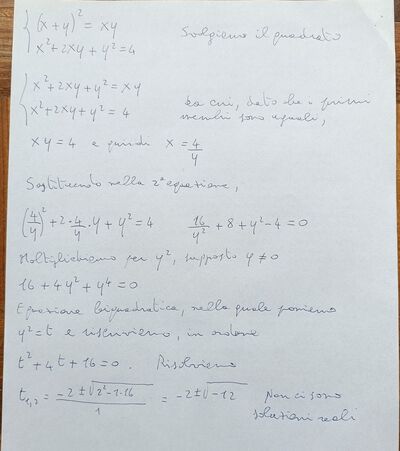 (x + y)² = xy
x² + 2xy + y² = 4 Svolgiamo il quadrato
x² + 2xy + y² = xy
x² + 2xy + y² = 4 da cui, dato che i primi
membri sono uguali,
xy = 4 e quindi x = 4/y
Sostituendo nella 2ª equazione,
(4/y)² + 2·4/y·y + y² = 4 16/y² + 8 + y² - 4 = 0
Moltiplichiamo per y², supposto y ≠ 0
16 + 4y² + y⁴ = 0
Equazione biquadratica, nella quale poniamo
y² = t e riscriviamo, in ordine
t² + 4t + 16 = 0. Risolviamo
t₁,₂ = (-2 ± √(2² - 1·16))/1 = -2 ± √-12 Non ci sono
soluzioni reali